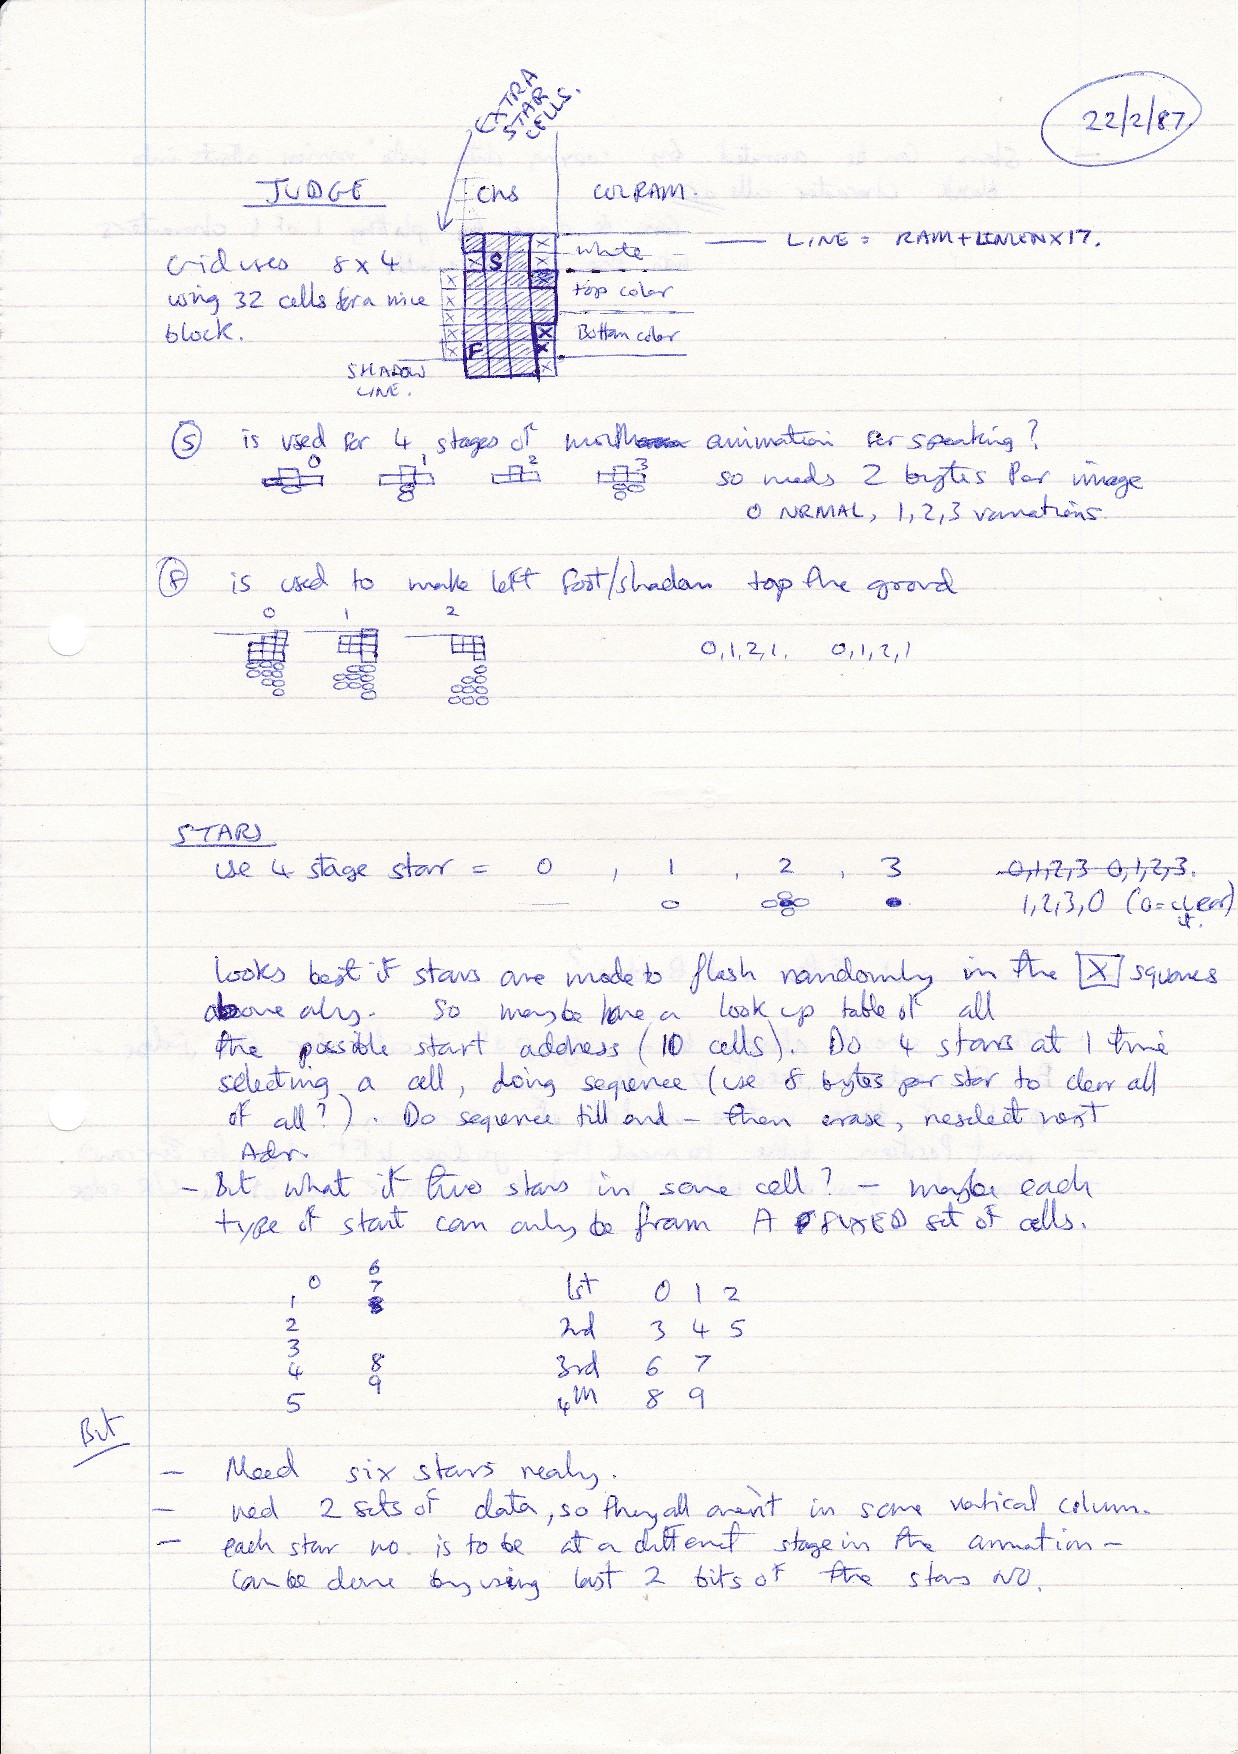 22/2/87.
EXTRA
STAR
CELLS.
JUDGE
CHS
COLRAM.
Grid uses 8 x 4
using 32 cells for a nice
block.
X
X S X
X X
X
X
X X
X F X
X
white
top color
Bottom color
LINE = RAM+LINLEN X17.
SHADOW
LINE.
S is used for 4 stages of mouth animation for speaking?
0 1 2 3
so needs 2 bytes Per image
0 NRMAL, 1,2,3 variations.
F is used to make left foot/shadow tap the grond
0 1 2
0,1,2,1. 0,1,2,1
STARS
use 4 stage star = 0 , 1 , 2 , 3 0,1,2,3 0,1,2,3.
1,2,3,0 (0=clear)
it.
Looks best if stars are made to flash randomly in the X squares
above only. So maybe have a look up table of all
the possible start address (10 cells). Do 4 stars at 1 time
selecting a cell, doing sequence (use 8 bytes per star to clear all
of all?). Do sequence till end - then erase, reselect next
Adr.
- But what if two stars in same cell? - maybe each
type of start can only be from A FIXED set of cells.
0
1
2
3
4
5
6
7
8
8
9
1st 0 1 2
2nd 3 4 5
3rd 6 7
4th 8 9
But
- Need six stars really.
- ned 2 sets of data, so they all aren't in same vertical column.
- each star no. is to be at a different stage in the anmation -
can be done by using last 2 bits of the stars NO.